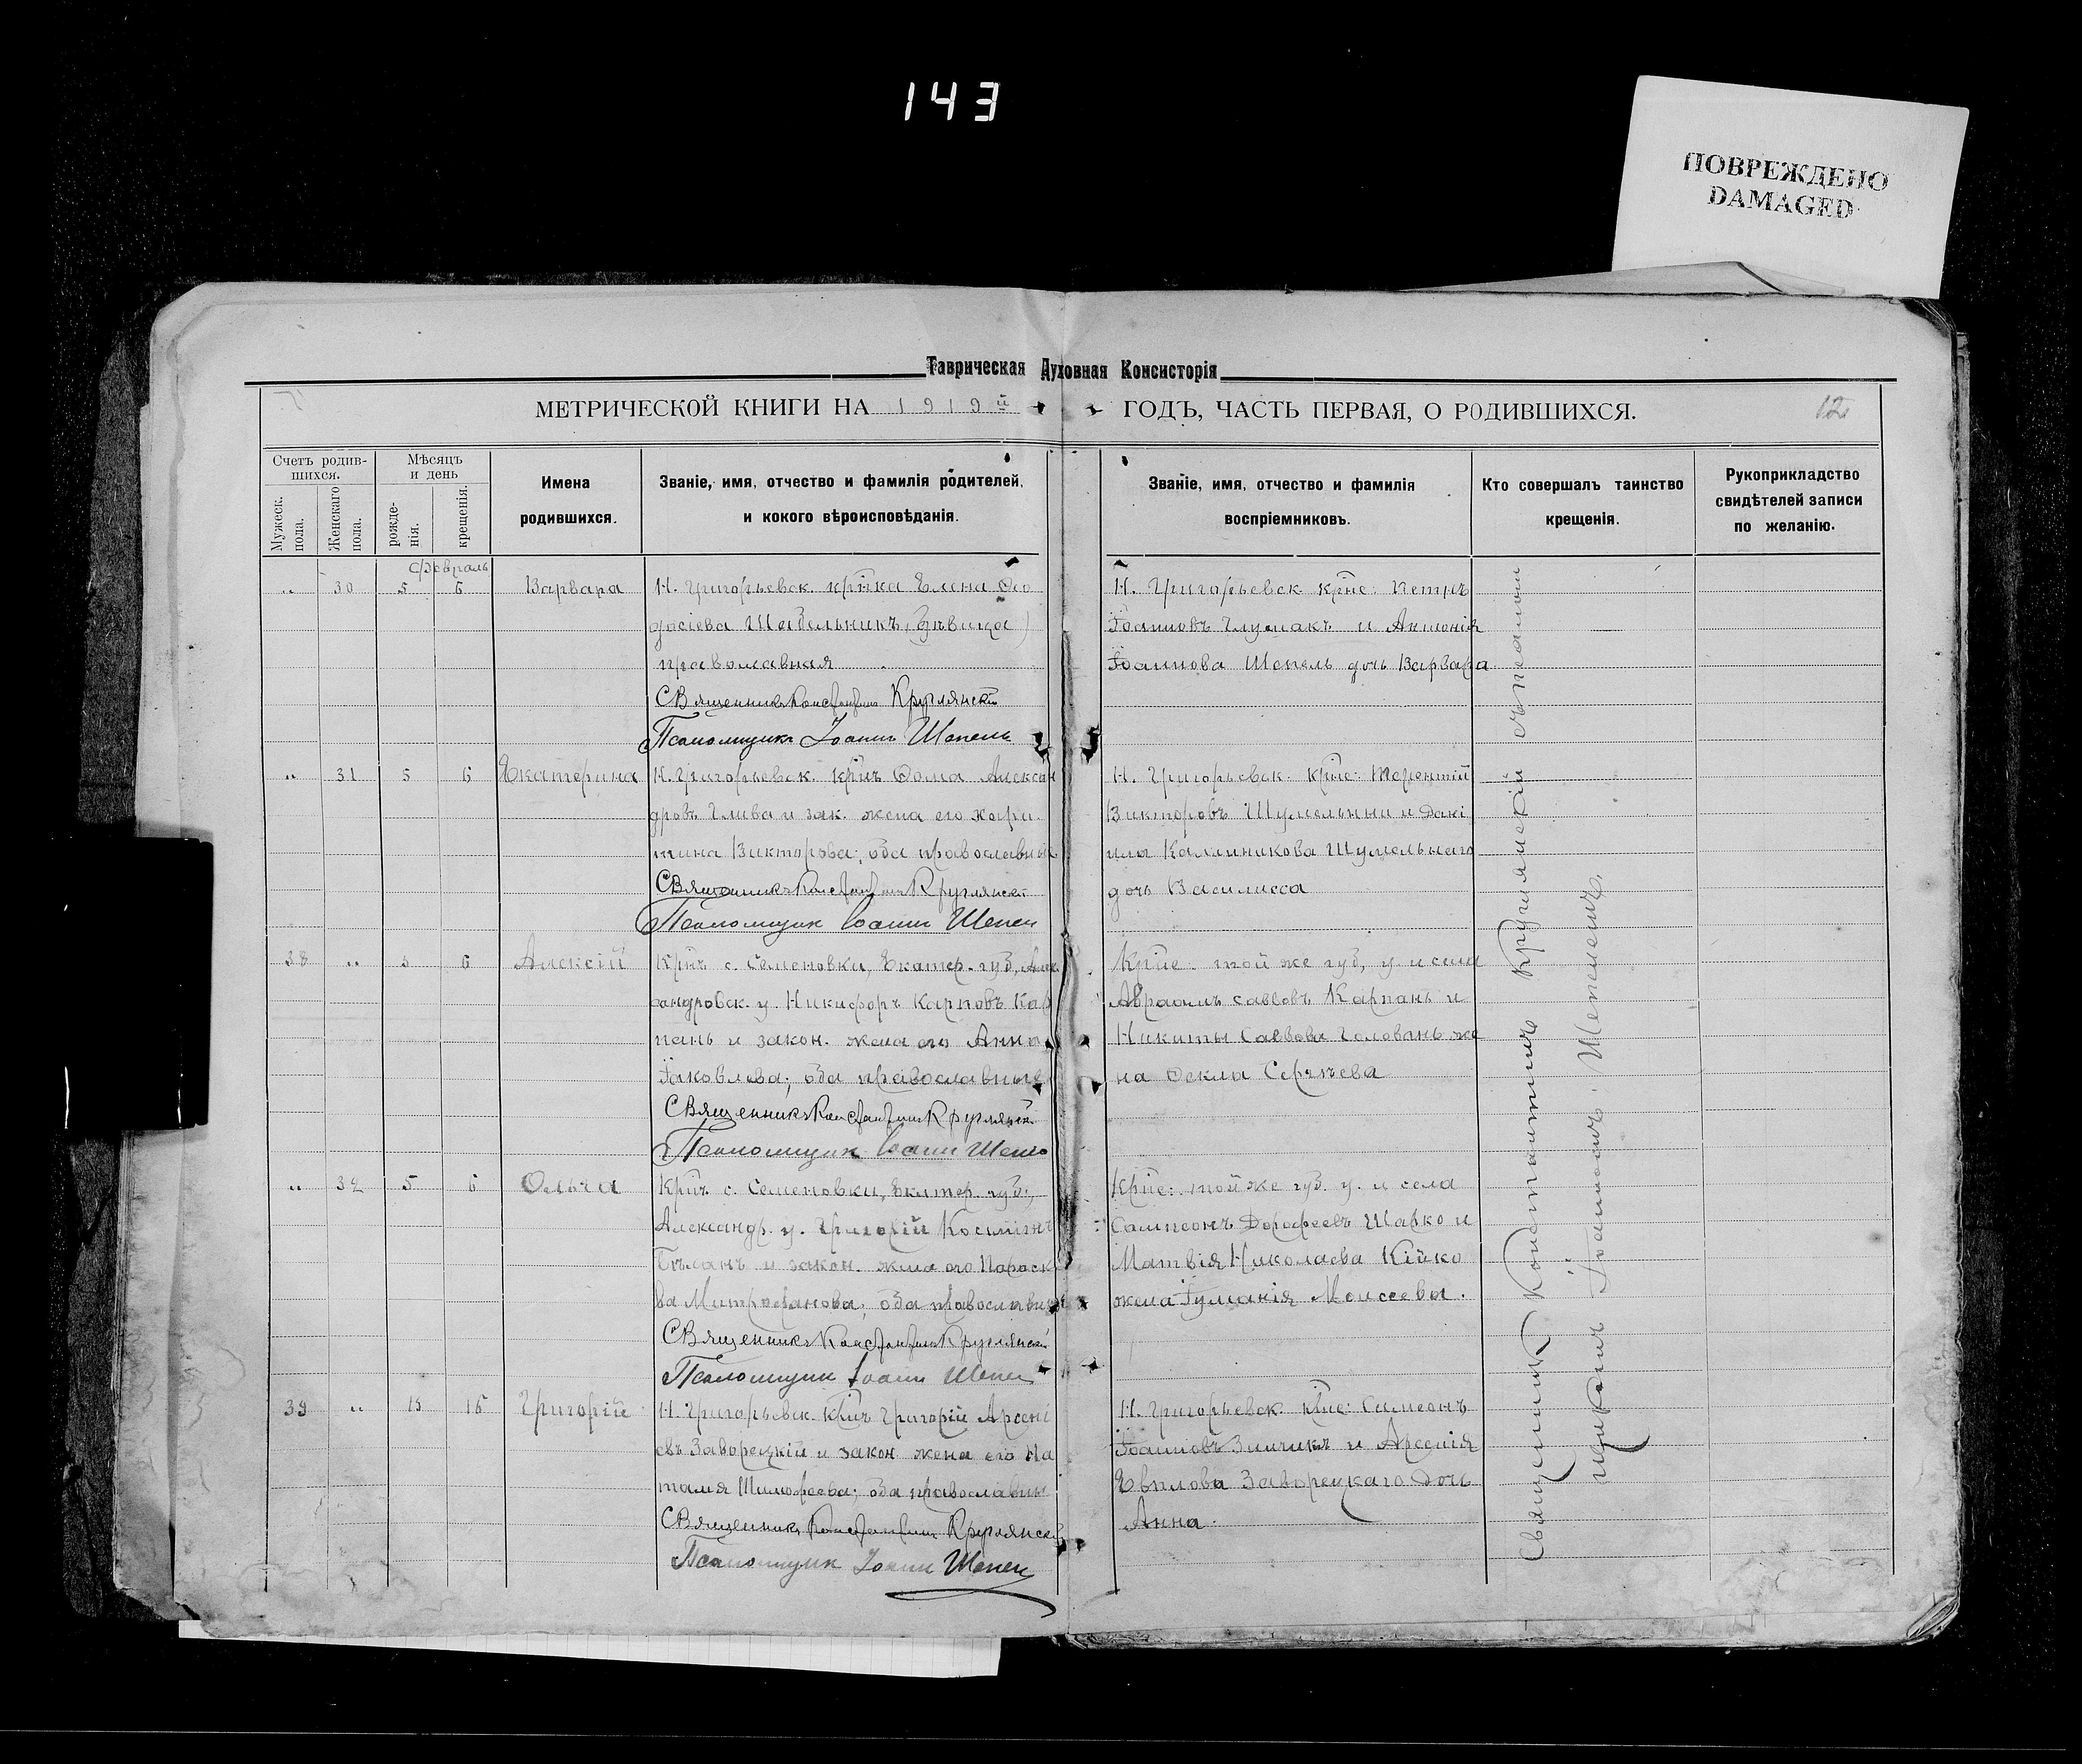 143
ПОВРЕЖДЕНО
DAMAGED
Таврическая Духовная Консисторія
МЕТРИЧЕСКОЙ КНИГИ НА 1919й ГОДЪ, ЧАСТЬ ПЕРВАЯ, О РОДИВШИХСЯ.
12
Счетъ родив-
шихся.
Мужеск.
пола.
Женскаго
пола.
Мѣсяцъ
и день
рожде-
нія.
крещенія.
Имена
родившихся.
Званіе, имя, отчество и фамилія родителей,
и кокого вѣроисповѣданія.
Званіе, имя, отчество и фамилія
воспріемниковъ.
Кто совершалъ таинство
крещенія.
Рукоприкладство
свидѣтелей записи
по желанію.
Февраль
„ 30 5 6 Варвара
Н. Григорьевск. крнка Елена Фео
досіева (дѣвица)
православная
Священникъ Константинъ Круглянскій
Псаломщикъ Іоаннъ Шепель
Н. Григорьевск. крне: Петръ
Іоанновъ Глумакъ и Антонія
Іоаннова Шепель дочь Варвара
„ 31 5 6 Екатерина
Н. Григорьевск. крнъ Фома Алексан
дровъ Глива и зак. жена его Хари
тина Викторова; оба православные
Священникъ Константинъ Круглянскій
Псаломщик Іоанн Шепел
Н. Григорьевск. крне: Терентій
Викторовъ и Дані
ила Каллиникова Шумельнаго
дочь Василисса
38 „ 5 6 Алексій
Крнъ с. Семеновки, Екатер. губ, Алек
сандровск. у. Никифоръ Карповъ Кар
пань и закон. жена его Анна
Іаковлева; оба православные
Священникъ Константинъ Круглянскій
Псаломщик Іоанн Шепел
Крне: той же губ, у. и села
Авраамъ Саввовъ Карпань и
Никиты Саввова Головань же
на Фекла Сергѣева
„ 32 5 6 Ольга
Крнъ с. Семеновки, Екатер. губ.,
Александр. у. Григорій
и закон. жена его Параске
ва Митрофанова; оба православные
Священникъ Константинъ Круглянскій
Псаломщик Іоанн Шепел
Крне: той же губ. у. и села
Сампсонъ Дорофеевъ Шарко и
Матвія Николаева Кійко
жена Іуліанія Моисеева.
39 „ 15 16 Григорій
Н. Григорьевск. крнъ Григорій Арсені
евъ Заворецкій и закон. жена его На
талія Тимофеева; оба православные
Священникъ Константинъ Круглянскій
Псаломщик Іоанн Шепел
Н. Григорьевск. крне: Симеонъ
Іоанновъ и Арсенія
Евплова Заворецкаго дочь
Анна.
Священникъ Константинъ Круглянскій съ псалом
щикомъ Іоанномъ Шепелемъ.